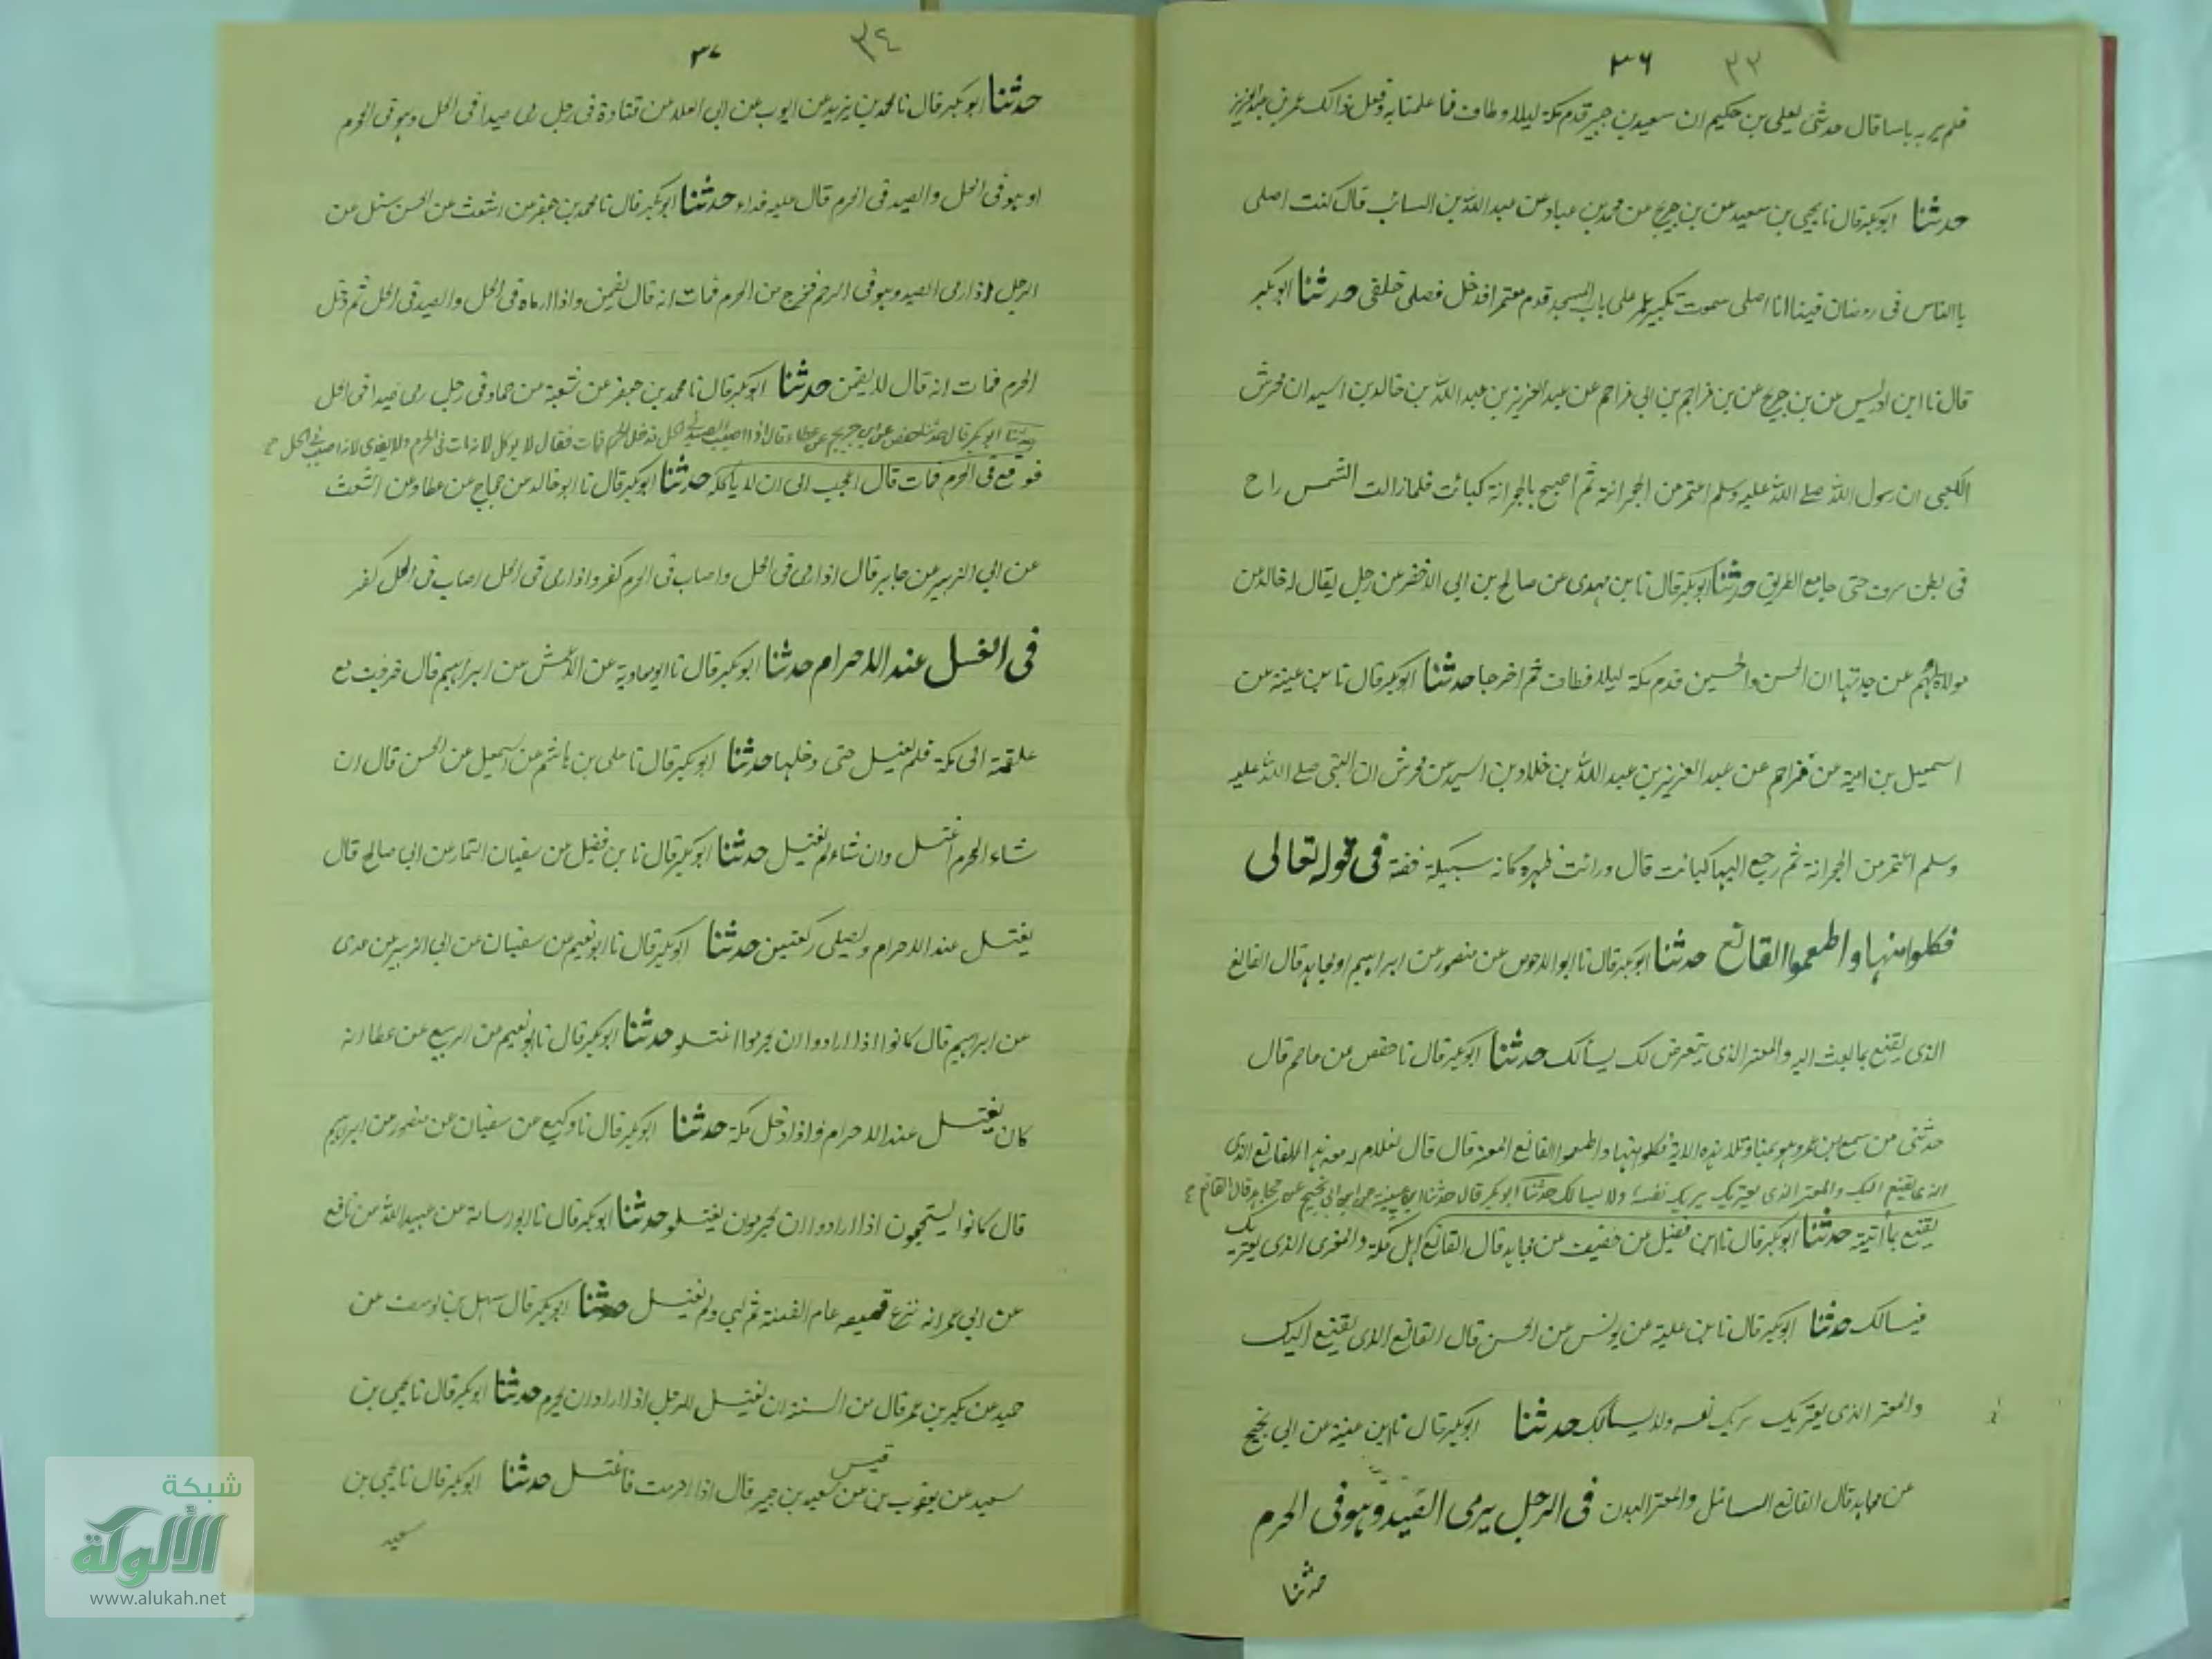 ٣٦ ٣٣
فلم ير به باسا قال حدثني يعلى بن حكيم ان سعيد بن جبير قدم مكة ليلا وطاف فما علمنا به وفعل ذالك عمر بن عبد العزيز
حدثنا ابو بكر قال نا يحيى بن سعيد عن بن جريج عن محمد بن عباد عن عبد الله بن السائب قال كنت اصلى
بالناس في رمضان فبينا انا اصلى سمعت تكبير عمر على باب المسجد قدم معتمرا فدخل فصلى خلفى حدثنا ابو بكر
قال نا ابن ادريس عن بن جريج عن بن مزاحم بن ابي مزاحم عن عبد العزيز بن عبد الله بن خالد بن اسيد ان محرش
الكعبى ان رسول الله صلے الله عليه وسلم اعتمر من الجعرانة ثم اصبح بالجعرانة كبائت فلما زالت الشمس راح
في بطن سرف حتى جامع الطريق حدثنا ابو بكر قال نا بن مهدى عن صالح بن ابي الاخضر عن رجل يقال له خالد عن
مولاة لهم عن جدتها ان الحسن والحسين قدم مكة ليلا فطاف ثم اخرجا حدثنا ابو بكر قال نا بن عينة عن
اسمعيل بن امية عن مزاحم عن عبد العزيز بن عبد الله بن خلاد بن اسيد عن محرش ان النبي صلے الله عليه
وسلم اعتمر من الجعرانة ثم رجع اليها كبائت قال ورائت ظهره كانه سبيكة فضة في قوله تعالى
فكلوا منها واطعموا القانع حدثنا ابو بكر قال نا ابو الاحوص عن منصور عن ابراهيم او مجاهد قال القانع
الذى يقنع بما بعث اليه والمعتر الذى يتعرض لك يسألك حدثنا ابو بكر قال نا حفص عن عاصم قال
حدثنى من سمع بن عمر وهو بمنا وتلا هذه الاية فكلوا منها واطعموا القانع المعتر قال قال لغلام له معه هذا للقانع الذى
الذى يقنع اليك والمعتر الذى يعتريك يريك نفسه ولا يسالك حدثنا ابو بكر قال حدثنا ابن عيينة عن ابن ابي نجيح عن مجاهد قال القانع
يقنع بما أتيته حدثنا ابو بكر قال نا ابن فضيل عن خصيف عن مجاهد قال القانع اهل مكة والمعترى الذى يعتريك
فيسالك حدثنا ابو بكر قال نا بن علية عن يونس عن الحسن قال القانع الذى يقنع اليك
والمعتر الذى يعتريك يريك نفسه ولا يسألك حدثنا ابو بكر قال نا بن عينة عن ابي نجيح
عن مجاهد قال القانع السائل والمعتر البدن في الرجل يرمى الصيد وهو في الحرم
حدثنا
٣٧ ٣٤
حدثنا ابو بكر قال نا محمد بن يزيد عن ايوب عن ابي العلاء عن قتادة في رجل رمى صيدا في الحل وهو في الحرم
او هو في الحل والصيد في الحرم قال عليه فداء حدثنا ابو بكر قال نا محمد بن جعفر عن اشعث عن الحسن سئل عن
الرجل اذا رمى الصيد وهو في الحرم فخرج من الحرم فمات انه قال يضمن واذا رماه في الحل والصيد في الحل ثم دخل
الحرم فمات انه قال لا يضمن حدثنا ابو بكر قال نا محمد بن جعفر عن شعبة عن حماد في رجل رمى صيدا في الحل
حدثنا ابو بكر قال حدثنا حفص عن ابن جريج عن عطاء قال اذا اصيب الصيد في الحل فدخل الحرم فمات فقال لا يوكل لانه مات في الحرم ولا يفدى لانه اصيب في الحل
فوقع في الحرم فمات قال اعجب الى ان لا يأكله حدثنا ابو بكر قال نا ابو خالد عن حجاج عن عطا وعن اشعث
عن ابي الزبير عن جابر قال اذا رمى في الحل واصاب في الحرم كفر واذا رمى في الحل اصاب في الحل كفر
في الغسل عند الاحرام حدثنا ابو بكر قال نا ابو معاوية عن الاعمش عن ابراهيم قال خرجت مع
علقمة الى مكة فلم يغتسل حتى دخلها حدثنا ابو بكر قال نا على بن هاشم عن اسمعيل عن الحسن قال ان
شاء المحرم اغتسل وان شاء لم يغتسل حدثنا ابو بكر قال نا بن فضيل عن سفيان التمار عن ابي صالح قال
يغتسل عند الاحرام ويصلى ركعتين حدثنا ابو بكر قال نا ابو نعيم عن سفيان عن ابي الزبير بن عدى
عن ابراهيم قال كانوا اذا ارادوا ان يحرموا اغتسلو حدثنا ابو بكر قال نا ابو نعيم عن الربيع عن عطا انه
كان يغتسل عند الاحرام واذا دخل مكة حدثنا ابو بكر قال نا وكيع عن سفيان عن منصور عن ابراهيم
قال كانوا يستحبون اذا ارادوا ان يحرمون يغتسلو حدثنا ابو بكر قال نا ابو اسامة عن عبيد الله عن نافع
عن ابن عمر انه نزع قميصه عام الفتنة ثم لبى ولم يغتسل حدثنا ابو بكر قال سهل بن يوسف عن
حميد عن بكير بن عمر قال من السنة ان يغتسل الرجل اذا اراد ان يحرم حدثنا ابو بكر قال نا يحيى بن
سعيد عن يعقوب بن قيس عن سعيد بن جبير قال اذا احرمت فاغتسل حدثنا ابو بكر قال نا يحيى بن
سعيد
شبكة
الألوكة
www.alukah.net